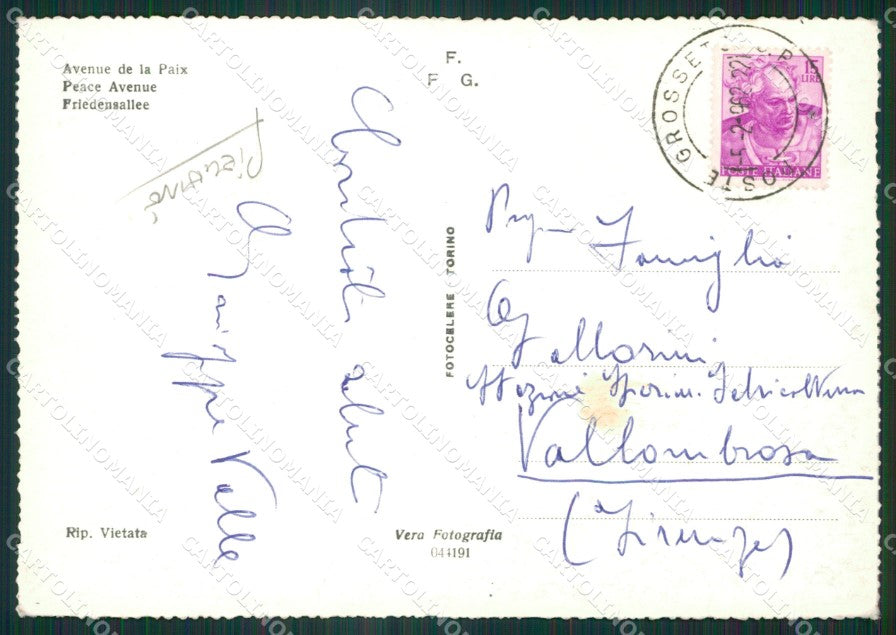 Avenue de la Paix
Peace Avenue
Friedensallee
F.
F G.
15
LIRE
POSTE ITALIANE
GROSSETO
POSTE
-5-2-962-22
Cordiali saluti
Giuseppe Valle
FOTOCELERE TORINO
Famiglia
Stazione Sperim. Selvicoltura
Vallombrosa
(Firenze)
Rip. Vietata
Vera Fotografia
044191
CARTOLINOMANIA